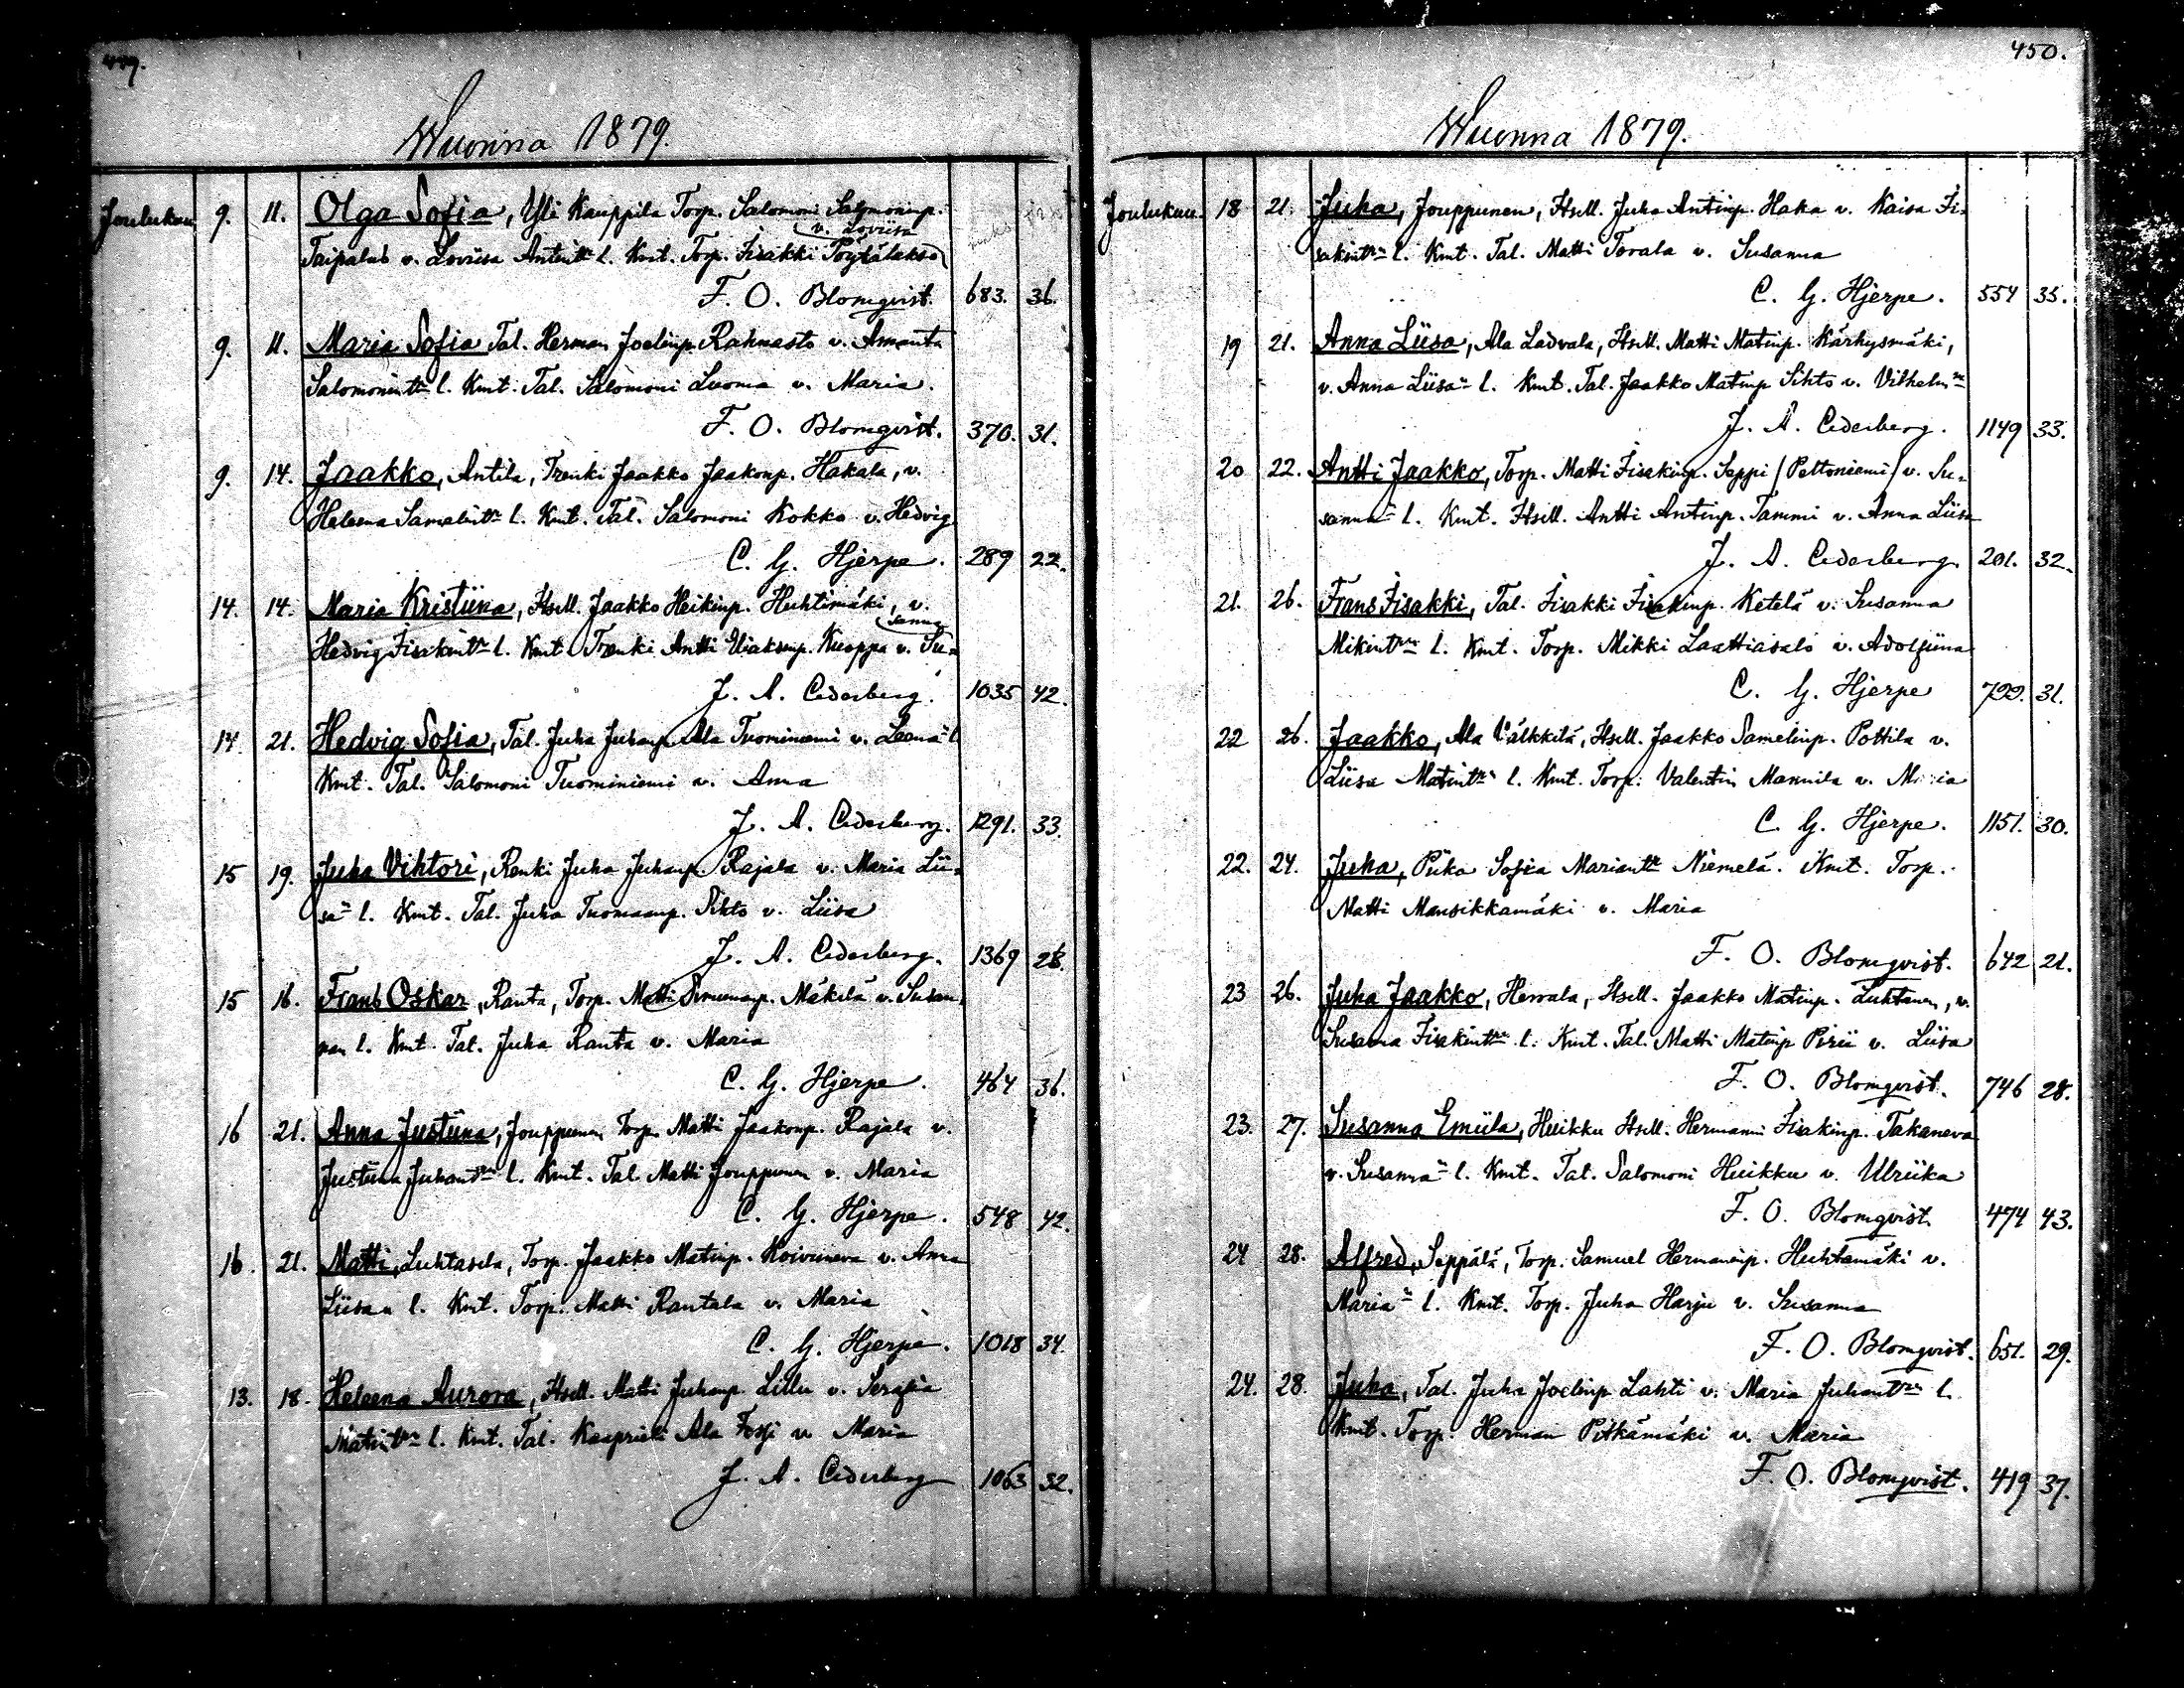 449.
Wuonna 1879.
Joulukuu 9. 11. Olga Sofia, Yli Kauppila Torp. Salomoni Salomoninp.
v. Loviisa
Taipalus v. Loviisa Antintr l. Kmt. Torp. Iisakki Pöytälakso
F. O. Blomqvist. 683. 36.
9. 11. Maria Sofia Tal. Herman Joelinp. Rahnasto v. Amanta
Salomonintr l. Kmt. Tal. Salomoni Luoma v. Maria.
F. O. Blomqvist. 370. 31.
9. 14. Jaakko, Antila, Trenki Jaakko Jaakonp. Hakala, v.
Heleena Samelintr l. Kmt. Tal. Salomoni Kokko v. Hedvig
C. G. Hjerpe. 289 22.
14. 14. Maria Kristiina, Itsell. Jaakko Heikinp. Huhtimäki, v.
sanna
Hedvig Iisakintr l. Kmt. Trenki Antti Eliaksenp. Kuoppa v. Su-
J. A. Cederberg. 1035 42.
14. 21. Hedvig Sofia, Tal. Juha Juhanp. Ala Tuominiemi v. Leena l.
Kmt. Tal. Salomoni Tuominiemi v. Anna
J. A. Cederberg. 1291. 33.
15 19. Juha Vihtori, Renki Juha Juhanp. Rajala v. Maria Lii-
sa l. Kmt. Tal. Juha Tuomaanp. Sihto v. Liisa
J. A. Cederberg. 1369 28.
15 16. Frans Oskar, Ranta, Torp. Matti Simunanp. Mäkelä v. Susan-
nan l. Kmt. Tal. Juha Ranta v. Maria
C. G. Hjerpe. 464 36.
16 21. Anna Justiina, Jouppunen Torp. Matti Jaakonp. Rajala v.
Justiina Juhantr l. Kmt. Tal. Matti Jouppunen v. Maria
C. G. Hjerpe. 548 42.
16. 21. Matti, Luhtasela, Torp. Jaakko Matinp. Koivuneva v. Anna
Liisan l. Kmt. Torp. Matti Rantala v. Maria
C. G. Hjerpe. 1018 34.
13. 18. Heleena Aurora, Itsell. Matti Juhanp. Lillu v. Serafia
Matintr l. Kmt. Tal. Kaaprieli Ala Fossi v. Maria
J. A. Cederberg 1063 32.
450.
Wuonna 1879.
Joulukuu. 18 21. Juha, Jouppunen, Itsell. Juha Antinp. Haka v. Kaisa Ii-
sakintr l. Kmt. Tal. Matti Torala v. Susanna
C. G. Hjerpe. 554 35.
19 21. Anna Liisa, Ala Ladvala, Itsell. Matti Matinp. Kärhysmäki,
v. Anna Liisan l. Kmt. Tal. Jaakko Matinp Sihto v. Vilhelm
J. A. Cederberg. 1149 33.
20 22. Antti Jaakko, Torp. Matti Iisakinp. Seppi (Peltoniemi) v. Su-
sanna l. Kmt. Itsell. Antti Antinp. Tammi v. Anna Liisa
J. A. Cederberg. 201. 32.
21. 26. Frans Iisakki, Tal. Iisakki Iisakinp. Ketelä v. Susanna
Mikintr l. Kmt. Torp. Mikki Laattiasalo v. Adolfiina
C. G. Hjerpe 722. 31.
22 26. Jaakko, Ala Välkkilä, Itsell. Jaakko Samelinp. Pottila v.
Liisa Matintr l. Kmt. Torp. Valentin Mannila v. Maria
C. G. Hjerpe. 1151. 30.
22. 24. Juha, Piika Sofia Mariantr Niemelä. Kmt. Torp.
Matti Mansikkamäki v. Maria
F. O. Blomqvist. 642 21.
23 26. Juha Jaakko, Herrala, Itsell. Jaakko Matinp. Luhtanen, v.
Susanna Iisakintr l. Kmt. Tal. Matti Matinp Pirii v. Liisa
F. O. Blomqvist. 746 28.
23. 27. Susanna Emiila, Huikku Itsell. Hermanni Iisakinp. Takaneva
v. Susanna l. Kmt. Tal. Salomoni Huikku v. Ulriika
F. O. Blomqvist. 474 43.
24 28. Alfred, Seppälä, Torp. Samuel Hermaninp. Huhtamäki v.
Maria l. Kmt. Torp. Juha Harju v. Susanna
F. O. Blomqvist. 651. 29.
24. 28. Juha, Tal. Juha Joelinp Lahti v. Maria Juhantr l.
Kmt. Torp. Herman Pitkämäki v. Maria
F. O. Blomqvist. 419 37.